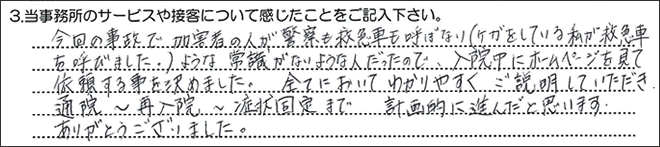 3.当事務所のサービスや接客について感じたことをご記入下さい。
今回の事故で加害者の人が警察も救急車も呼ばなり(ケガをしている私が救急車
を呼びました..)ような常識がないような人だったので、入院中にホームページを見て
依頼する事を決めました。 全てにおいてわかりやすくご説明していただき
通院~再入院~症状固定まで 計画的に進んだと思います.
ありがとうございました。